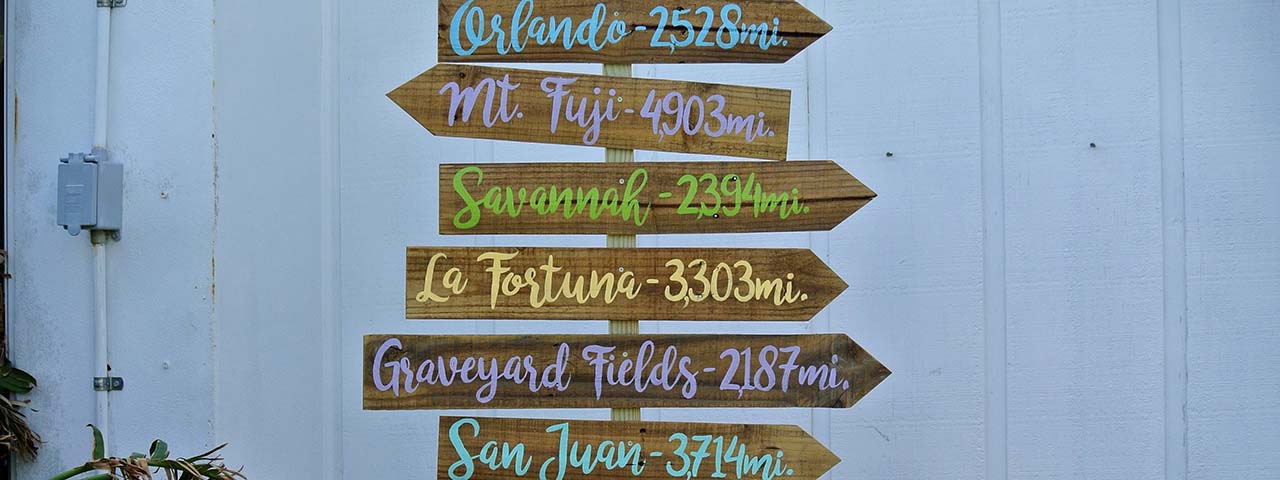 Orlando - 2,528mi.
Mt. Fuji - 4,903mi.
Savannah - 2,394mi.
La Fortuna - 3,303mi.
Graveyard Fields - 2,187mi.
San Juan - 3,714mi.